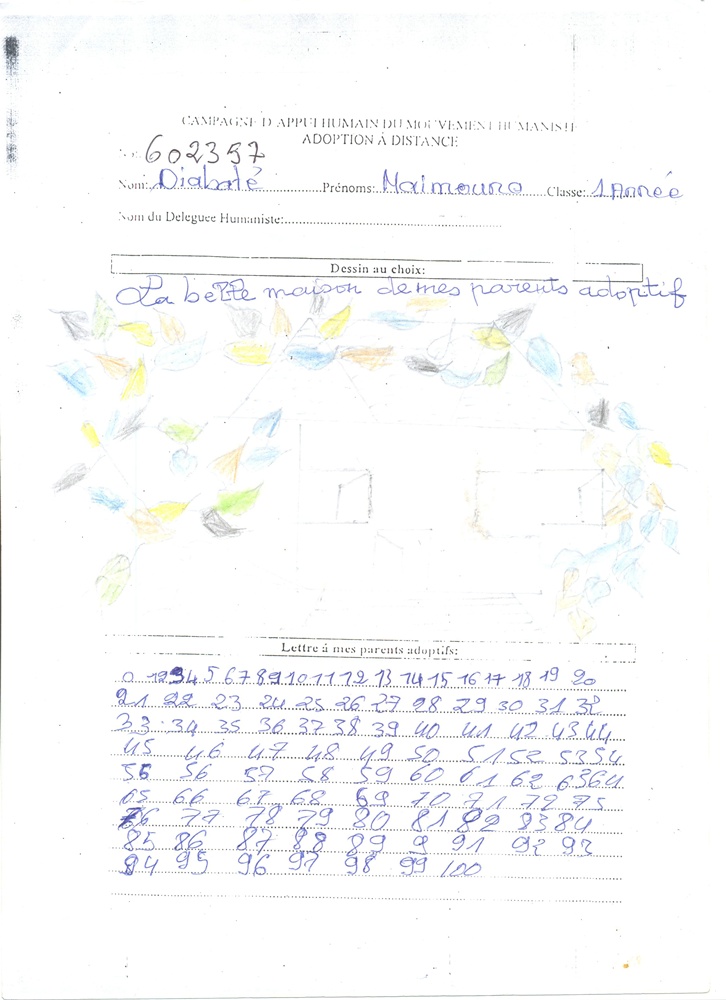 CAMPAGNE D'APPUI HUMAIN DU MOUVEMENT HUMANISTE
ADOPTION À DISTANCE
602397
Nom: Diabaté Prénoms: Maimouna Classe: 1 Année
Nom du Deleguee Humaniste:
Dessin au choix:
La belle maison de mes parents adoptif
Lettre à mes parents adoptifs:
0 1 2 3 4 5 6 7 8 9 10 11 12 13 14 15 16 17 18 19 20
21 22 23 24 25 26 27 28 29 30 31 32
33 34 35 36 37 38 39 40 41 42 43 44
45 46 47 48 49 50 51 52 53 54
55 56 57 58 59 60 61 62 63 64
65 66 67 68 69 70 71 72 75
76 77 78 79 80 81 82 83 84
85 86 87 88 89 9 91 92 93
94 95 96 97 98 99 100